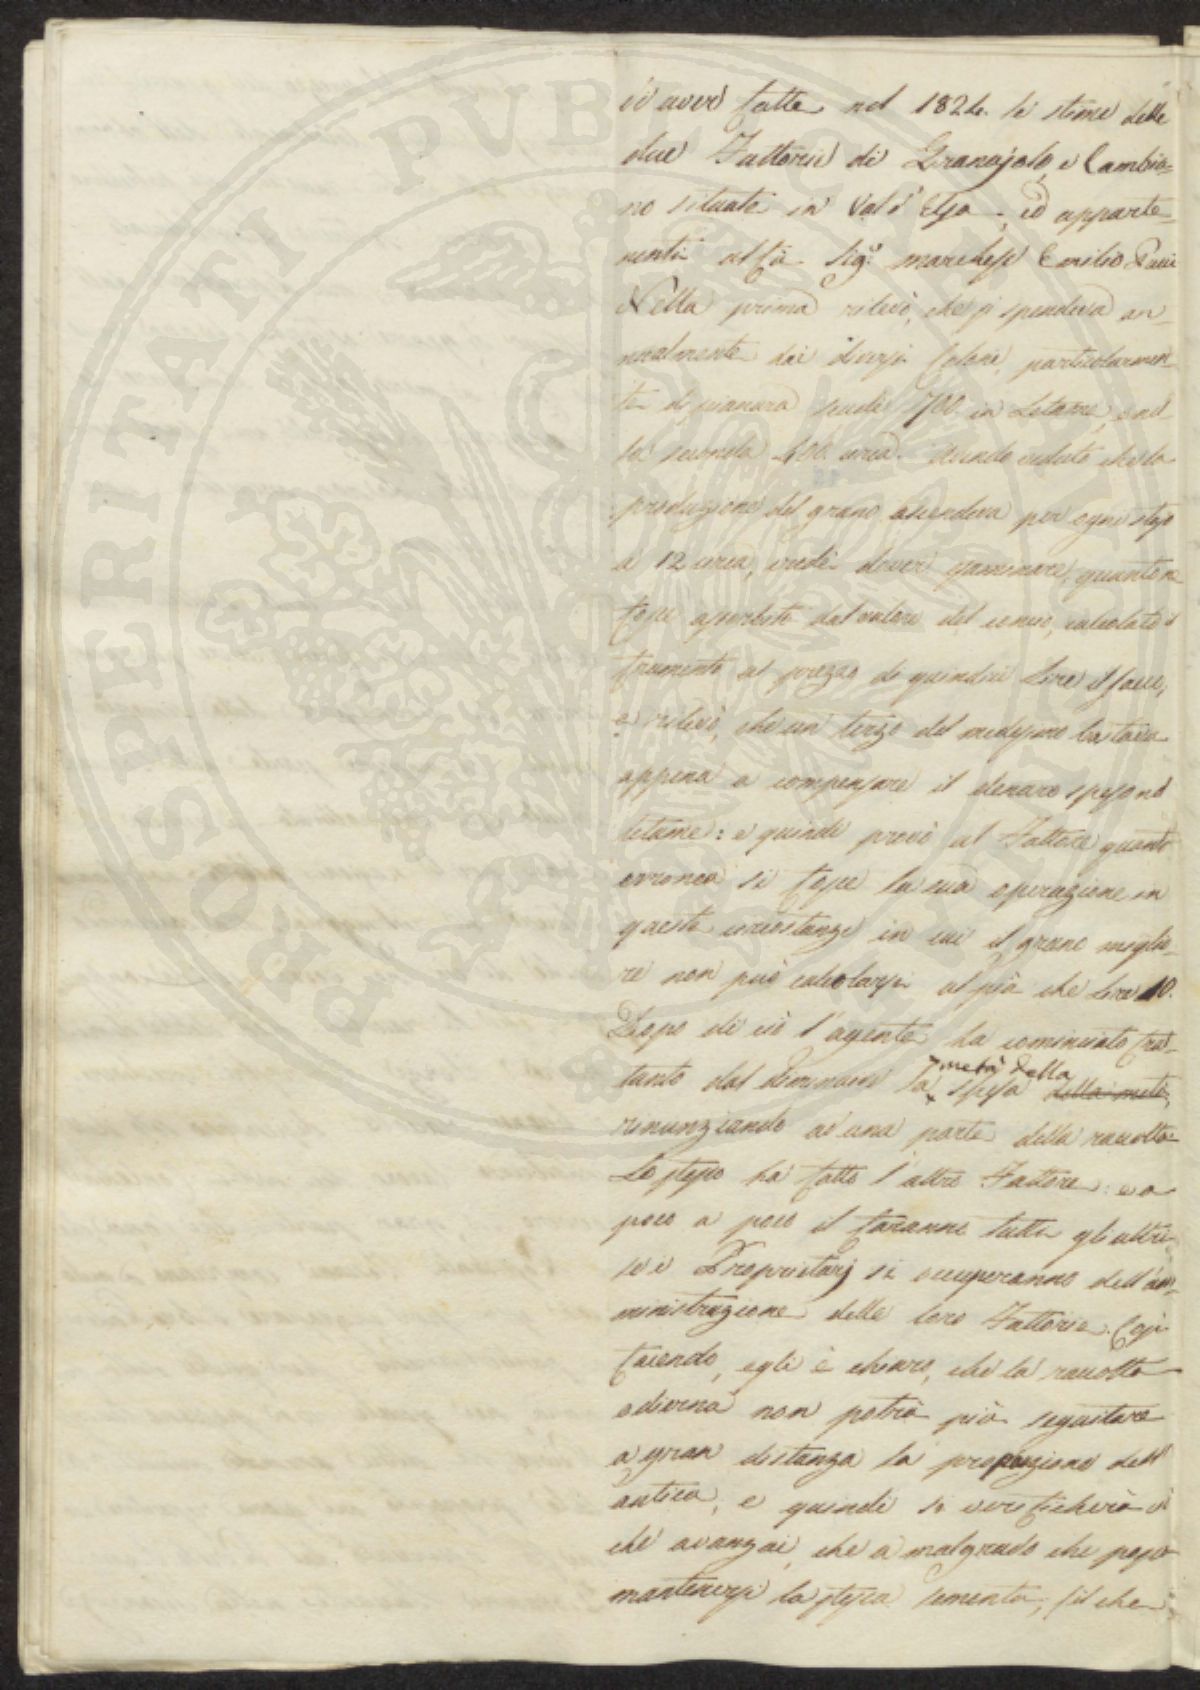 PROSPERITATI PUBLICAE
ed aver fatte nel 1824. le stime delle
due Fattorie di Granajolo, e Cambia-
no situate in Val d'Elsa, ed apparte-
nenti al fù Sig.e marchese Emilio Pucci
Nella prima rilevò, che si spendeva an-
nualmente dai diversi Coloni, particolarmen-
te di pianura scudi 700. in Letame, e nel-
la seconda 400. circa. Avendo veduto che la
produzione del grano ascendeva per ogni stajo
a 12 circa, credè dover esaminare, quanto ne
fosse assorbito dal valore del concio, calcolato il
frumento al prezzo di quindici Lire il sacco,
e rilevò, che un terzo del medesimo bastava
appena a compensare il denaro speso nel
letame: e quindi provò al Fattore quanto
erronea si fosse la sua operazione in
queste circostanze in cui il grano miglio-
re non può calcolarsi al più che Lire 10.
Dopo di ciò l'agente ha cominciato frat-
tanto dal diminuire la metà della spesa della metà,
rinunziando ad una parte della raccolta
Lo stesso ha fatto l'altro Fattore: e a
poco a poco il faranno tutti gli altri
se i Proprietarj si occuperanno dell'am-
ministrazione delle loro Fattorie. Così
facendo, egli è chiaro, che la raccolta
odierna non potrà più seguitare
a gran distanza la proporzione dell'
antica, e quindi si verificherà ciò
che avanzai, che a malgrado che possa
mantenersi la stessa sementa, (il che